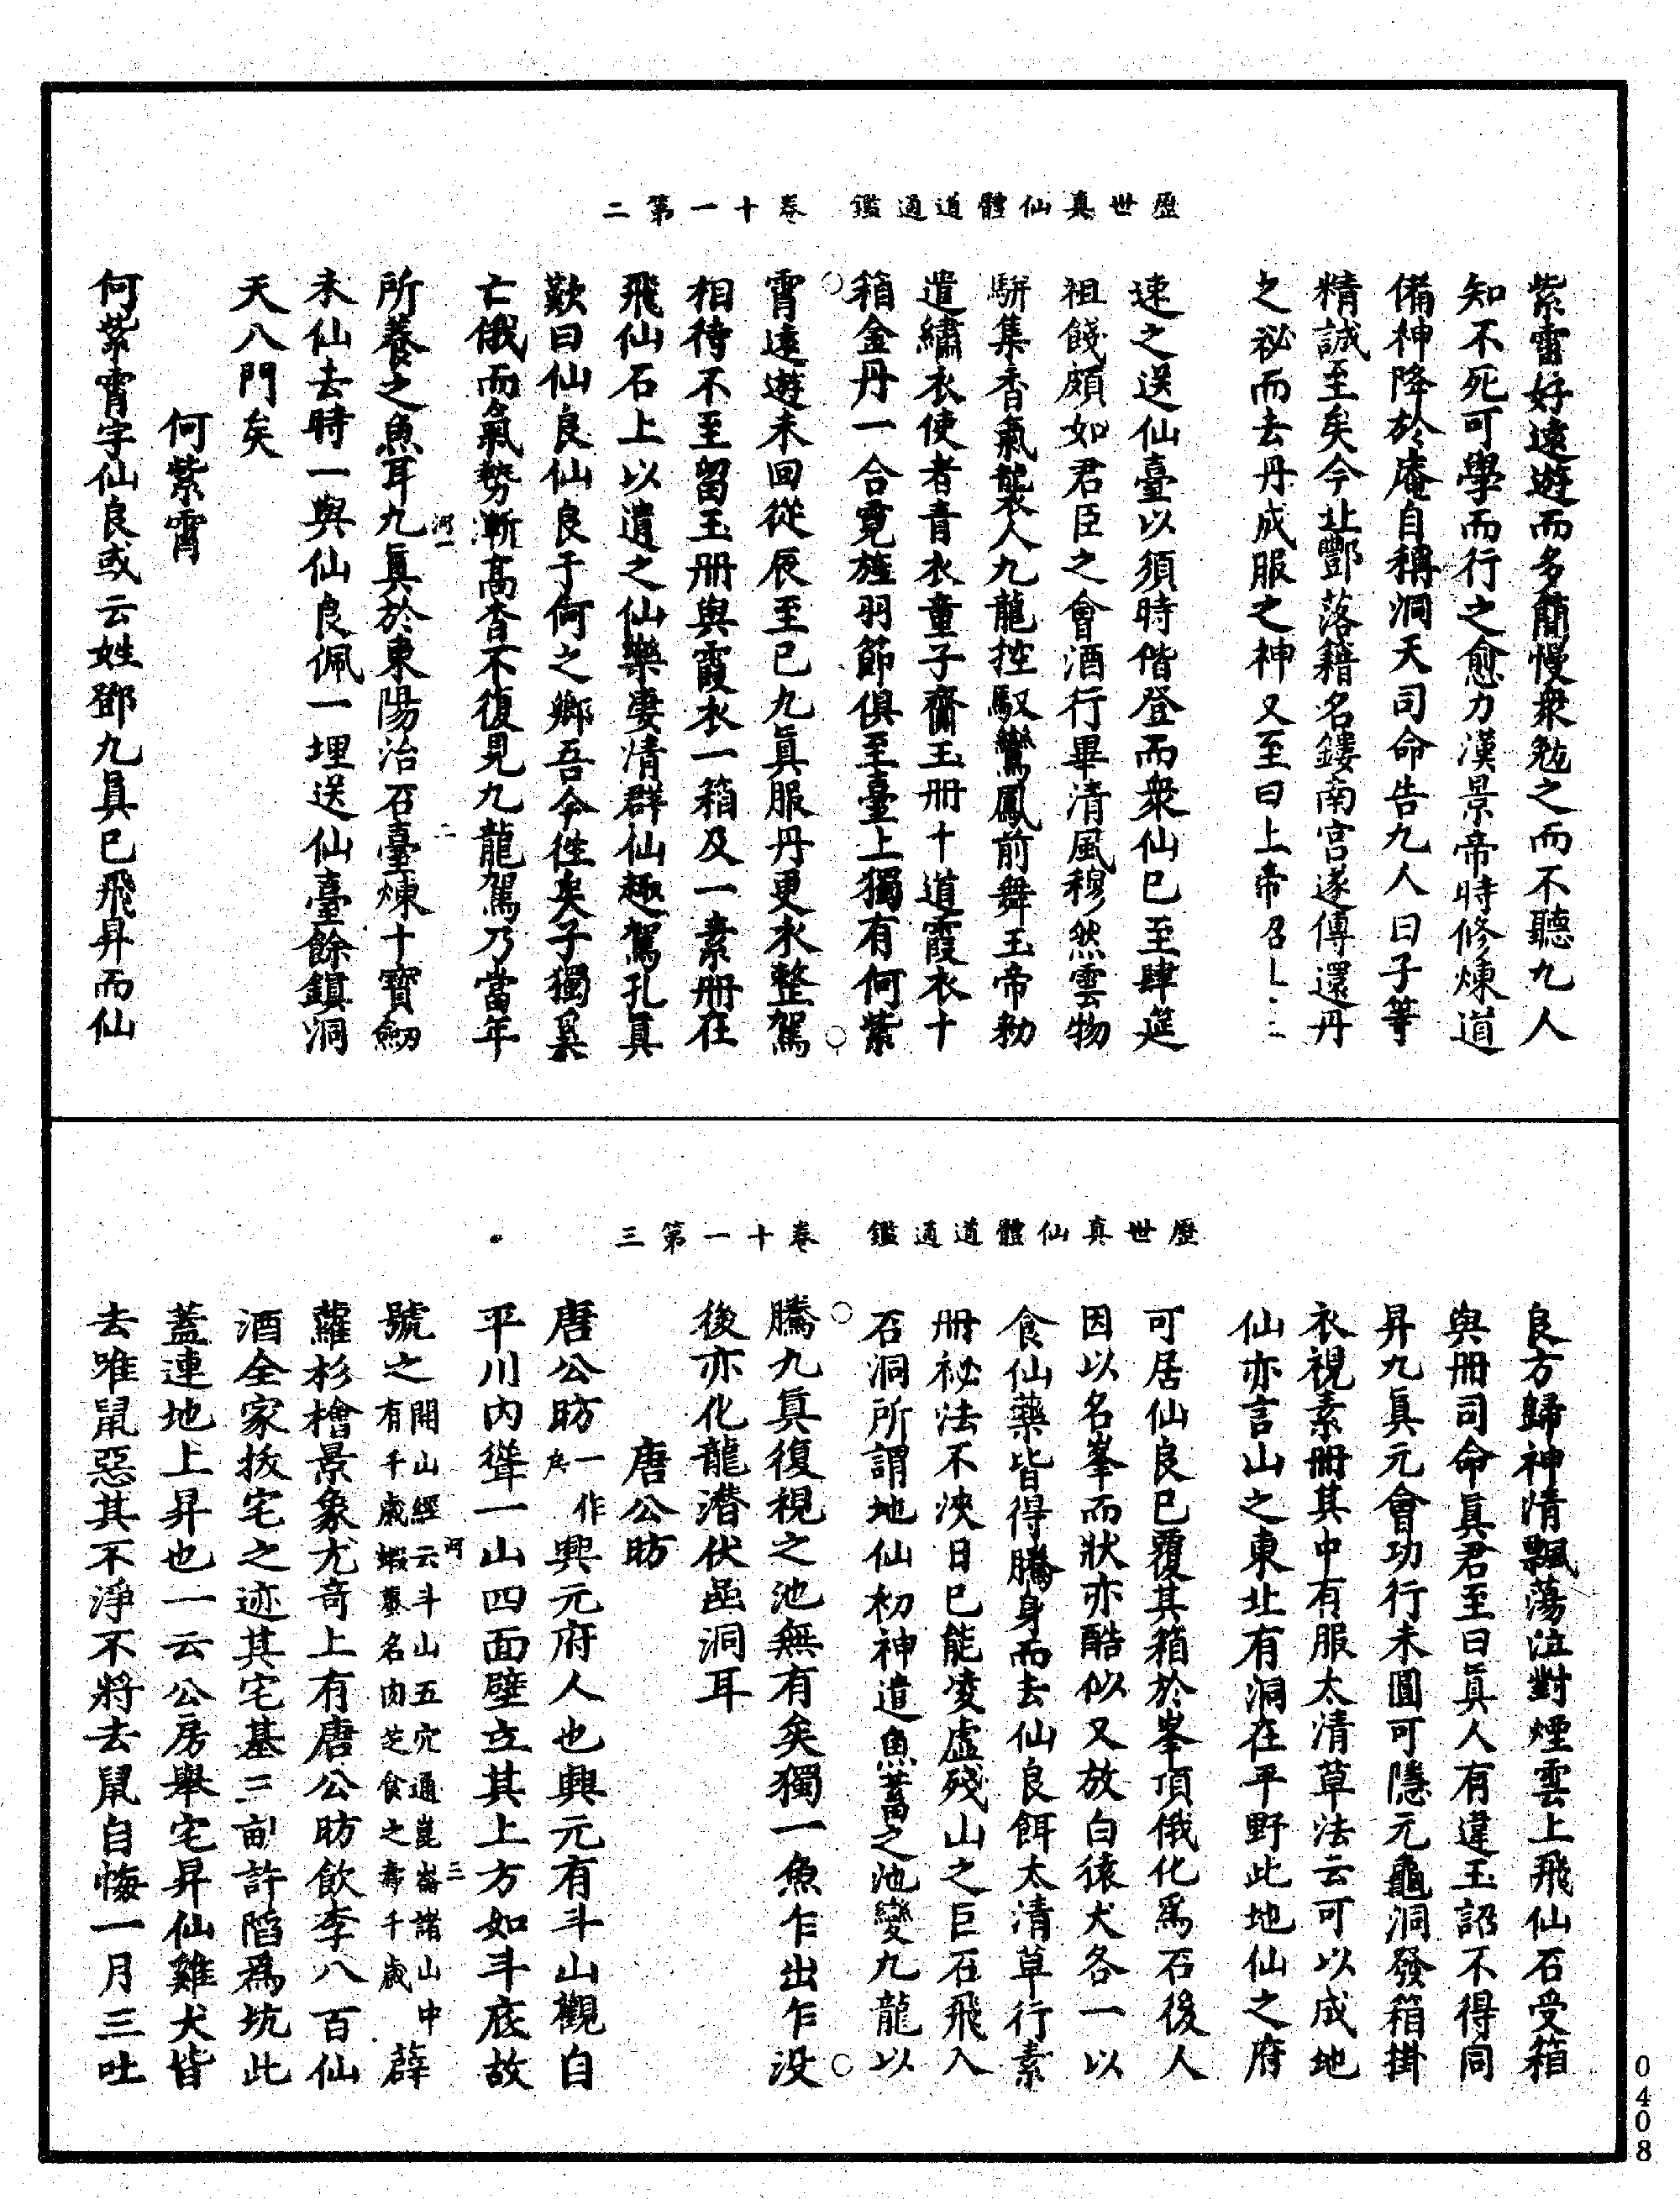 歷世真仙體道通鑑　卷十一第二
紫霄好遠遊而多簡慢衆勉之而不聽九人
知不死可學而行之愈力漢景帝時修煉道
備神降於庵自稱洞天司命告九人曰子等
精誠至矣今北酆落籍名鏤南宮遂傳還丹
之祕而去丹成服之神又至曰上帝召
速之送仙臺以須時偕登而衆仙已至肆筵
祖餞頗如君臣之會酒行畢清風穆然雲物
駢集香氣襲人九龍控馭鸞鳳前舞玉帝勑
遣繡衣使者青衣童子齎玉冊十道霞衣十
箱金丹一合霓旌羽節俱至臺上獨有何紫
霄遠遊未回從辰至巳九真服丹更衣整駕
相待不至留玉冊與霞衣一箱及一素冊在
飛仙石上以遺之仙樂淒清群仙趣駕孔真
歎曰仙良仙良于何之鄉吾今徃矣子獨奚
亡俄而氣勢漸高杳不復見九龍駕乃當年
河一　二
所養之魚耳九真於東陽治石臺煉十寶劒
未仙去時一與仙良佩一埋送仙臺餘鎮洞
天八門矣
何紫霄
何紫霄字仙良或云姓鄧九真已飛昇而仙
歷世真仙體道通鑑　卷十一第三
良方歸神情飄蕩泣對煙雲上飛仙石受箱
與冊司命真君至曰真人有違玉詔不得同
昇九真元會功行未圓可隱元龜洞發箱掛
衣視素冊其中有服太清草法云可以成地
仙亦言山之東北有洞在平野此地仙之府
可居仙良已覆其箱於峯頂俄化爲石後人
因以名峯而狀亦酷似又放白猿犬各一以
食仙藥皆得騰身而去仙良餌太清草行素
冊祕法不浹日已能凌虛殘山之巨石飛入
石洞所謂地仙初神遣魚蓄之池變九龍以
騰九真復視之池無有矣獨一魚乍出乍沒
後亦化龍潛伏函洞耳
唐公昉
唐公昉一作房興元府人也興元有斗山觀自
平川內聳一山四面壁立其上方如斗底故
河　三
號之開山經云斗山五穴通崑崙諸山中有千歲蝦蟇名肉芝食之壽千歲薜
蘿杉檜景象尤奇上有唐公昉飲李八百仙
酒全家拔宅之迹其宅基三畝許陷爲坑此
蓋連地上昇也一云公房舉宅昇仙雞犬皆
去唯鼠惡其不淨不將去鼠自悔一月三吐
0408